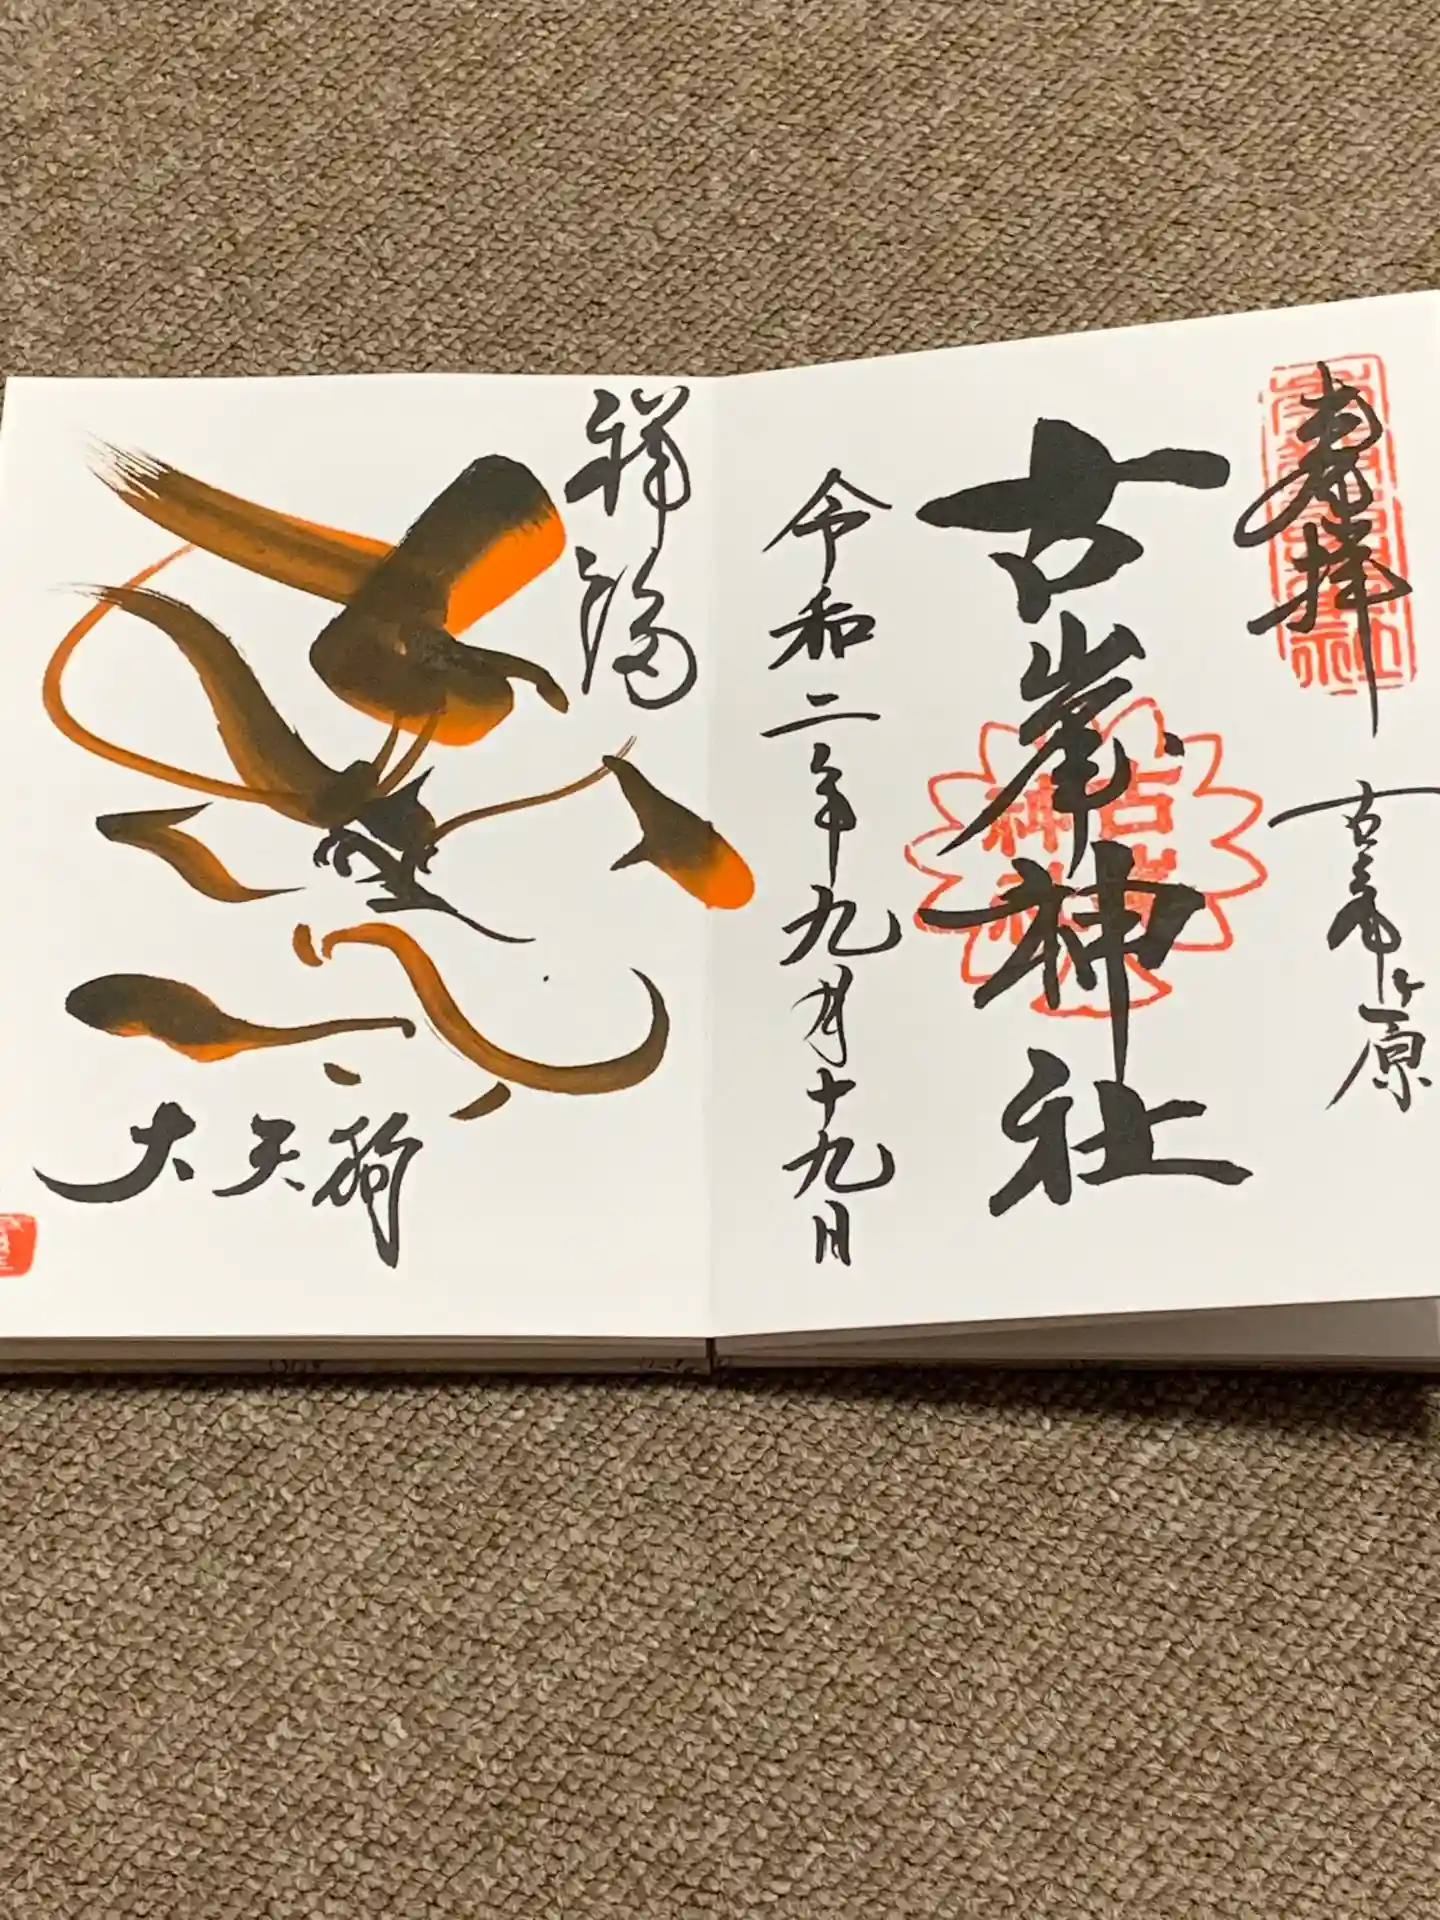 奉拝
古峯ヶ原
古峯神社
古峯神社
令和二年九月十九日
祥福
大天狗